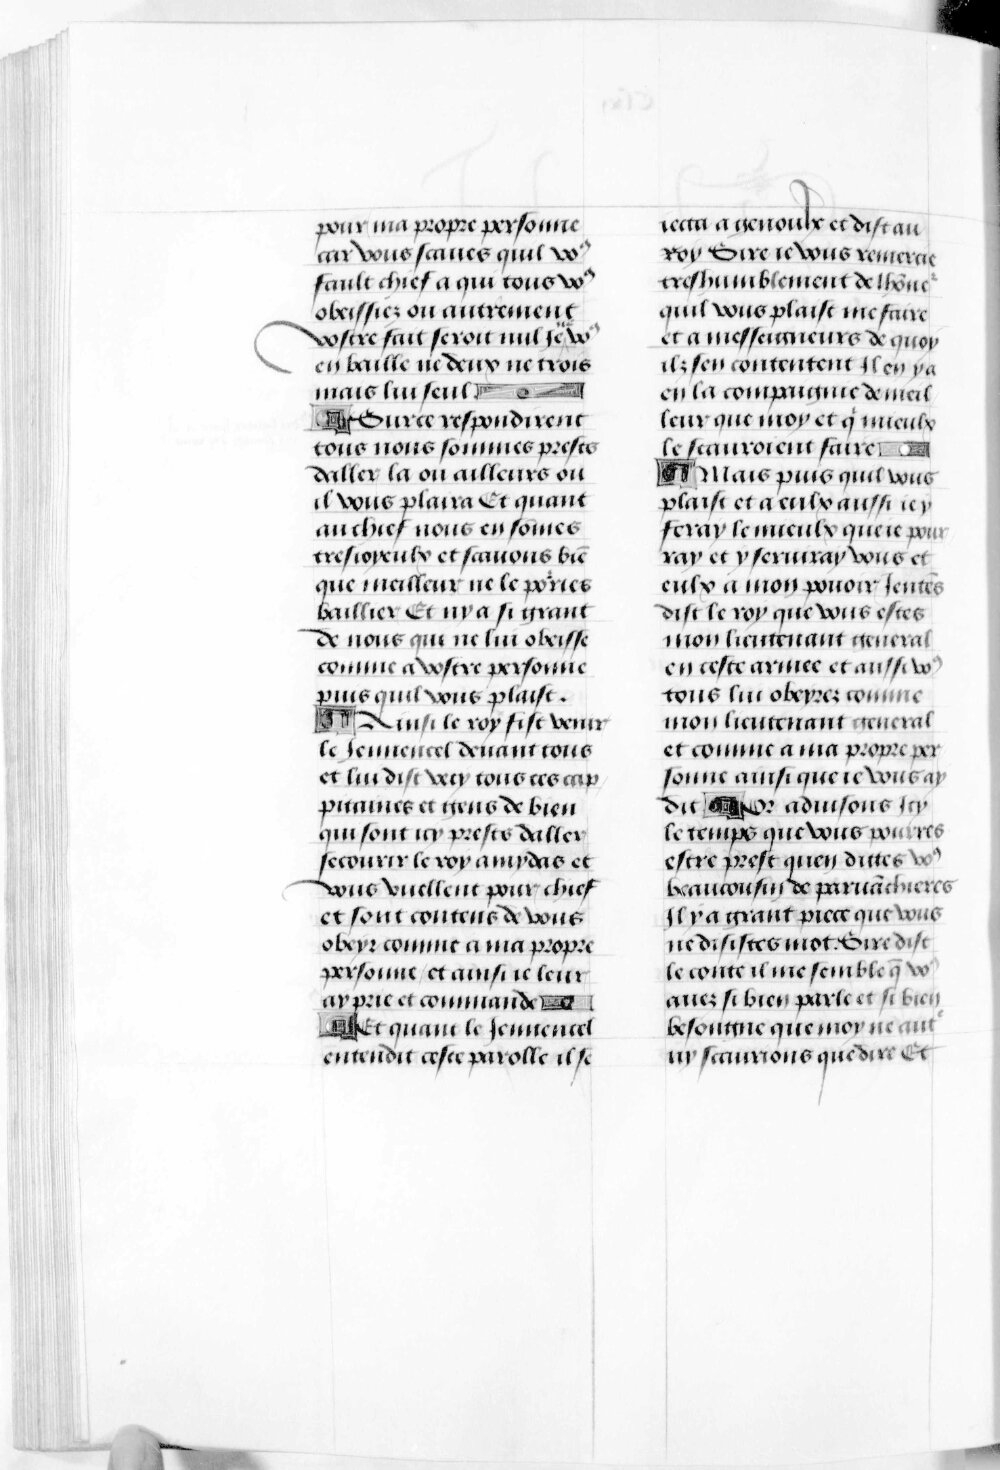 pour ma propre personne
car vous scaues quil vo9
fault chief a qui tous vo9
obeissiez ou autrement
vostre fait seroit nul Je vo9
en baille ne deux ne trois
mais lui seul
¶ Sur ce respondirent
tous nous sommes prestz
daller la ou ailleurs ou
il vous plaira Et quant
au chief nous en som̄es
tresioyeulx et scauons biē
que meilleur ne le porries
baillier Et ny a si grant
de nous qui ne lui obeisse
comme a vostre personne
puis quil vous plaist.
¶ Ainsi le roy fist venir
le Jennencel deuant tous
et lui dist vecy tous ces cap
pitaines et gens de bien
qui sont icy prestz daller
secourir le roy amydas et
vous vuellent pour chief
et sont contens de vous
obeyr comme a ma propre
personne / et ainsi ie leur
ay prie et commande
¶ Et quant le Jennencel
entendit ceste parolle il se
iecta a genoulx et dist au
roy Sire ie vous remercie
treshumblement de lhōne
quil vous plaist me faire
et a messeigneurs de quoy
ilz sen contentent Il en ya
en la compaignie de meil
leur que moy et q mieulx
le scauroient faire
¶ Mais puis quil vous
plaist et a eulx aussi ie y
feray le mieulx que ie pour
ray et y seruiray vous et
eulx a mon pouoir Jentēs
dist le roy que vous estes
mon lieutenant general
en ceste armee et aussi vo9
tous lui obeyrez comme
mon lieutenant general
et comme a ma propre per
sonne ainsi que ie vous ay
dit ¶ Or aduisons Icy
le temps que vous pourres
estre prest quen dittes vo9
beaucousin de paruāchieres
Il y a grant piece que vous
ne disistes mot. Sire dist
le conte il me semble q̄ vo9
auez si bien parle et si bien
besongne que moy ne aut
ny scaurions que dire Et